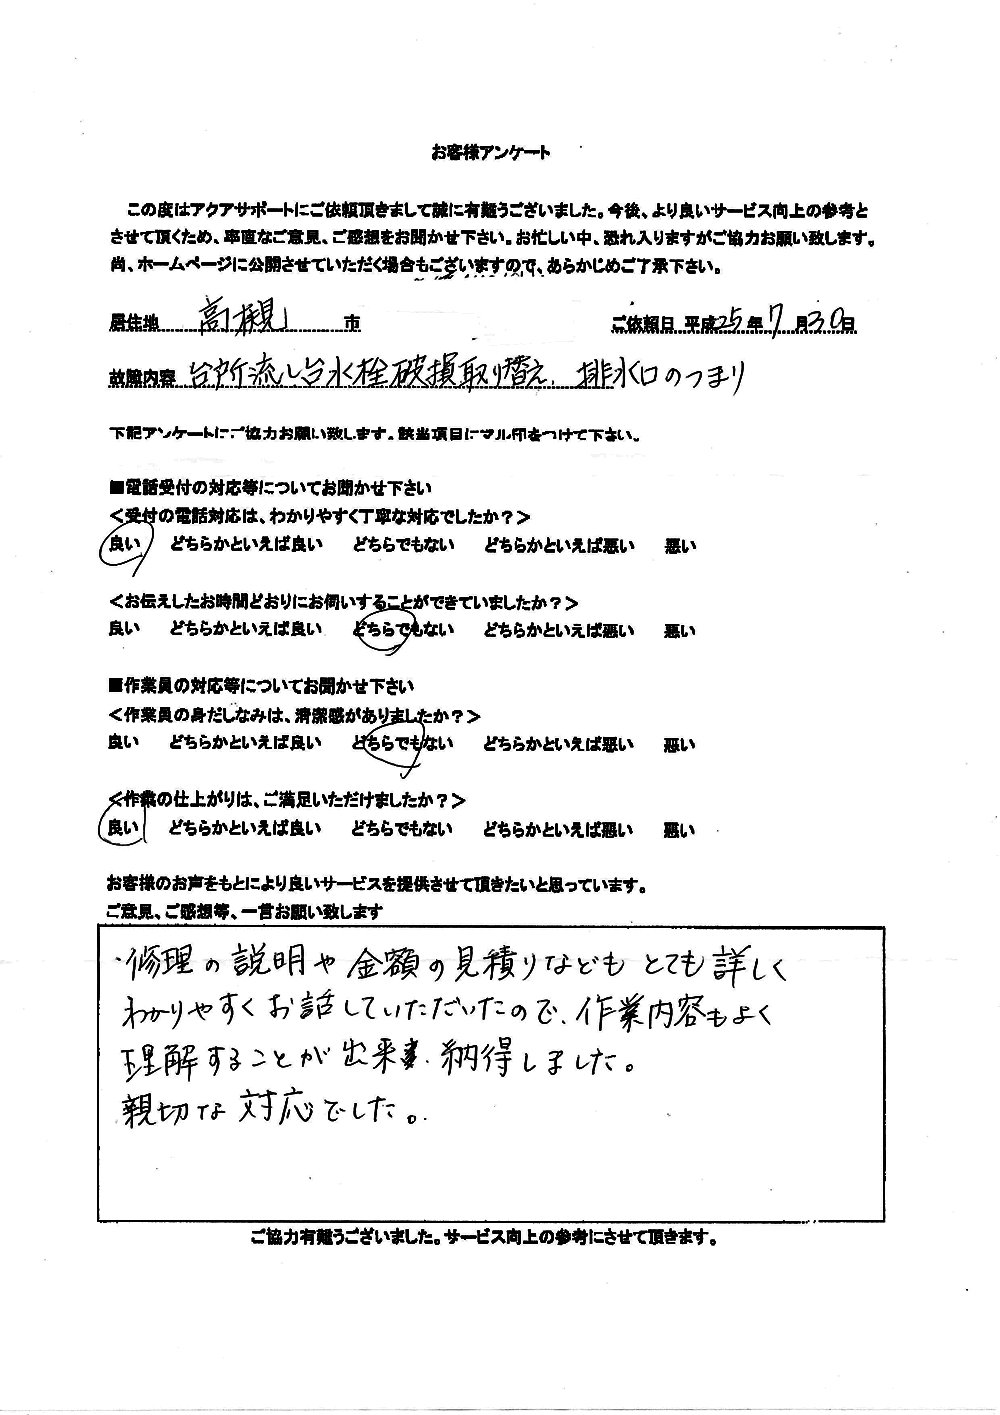 お客様アンケート
この度はアクアサポートにご依頼頂きまして誠に有難うございました。今後、より良いサービス向上の参考と
させて頂くため、率直なご意見、ご感想をお聞かせ下さい。お忙しい中、恐れ入りますがご協力お願い致します。
尚、ホームページに公開させていただく場合もございますので、あらかじめご了承下さい。
居住地 高槻 市 ご依頼日 平成25年7月30日
故障内容 台所流し台水栓破損取り替え、排水口のつまり
下記アンケートにご協力お願い致します。該当項目にマル印をつけて下さい。
■電話受付の対応等についてお聞かせ下さい
<受付の電話対応は、わかりやすく丁寧な対応でしたか?>
良い どちらかといえば良い どちらでもない どちらかといえば悪い 悪い
<お伝えしたお時間どおりにお伺いすることができていましたか?>
良い どちらかといえば良い どちらでもない どちらかといえば悪い 悪い
■作業員の対応等についてお聞かせ下さい
<作業員の身だしなみは、清潔感がありましたか?>
良い どちらかといえば良い どちらでもない どちらかといえば悪い 悪い
<作業の仕上がりは、ご満足いただけましたか?>
良い どちらかといえば良い どちらでもない どちらかといえば悪い 悪い
お客様のお声をもとにより良いサービスを提供させて頂きたいと思っています。
ご意見、ご感想等、一言お願い致します
・修理の説明や金額の見積りなどもとても詳しく
わかりやすくお話していただいたので、作業内容もよく
理解することが出来、納得しました。
親切な対応でした。
ご協力有難うございました。サービス向上の参考にさせて頂きます。